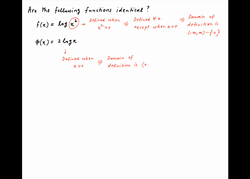 Are the following functions identical ?
f(x) = log(x²) → Defined when x² > 0 ⇒ Defined ∀ x except when x=0 ⇒ Domain of definition is (-∞, ∞) - {0}
φ(x) = 2 log x
↓
Defined when x>0 ⇒ Domain of definition is (